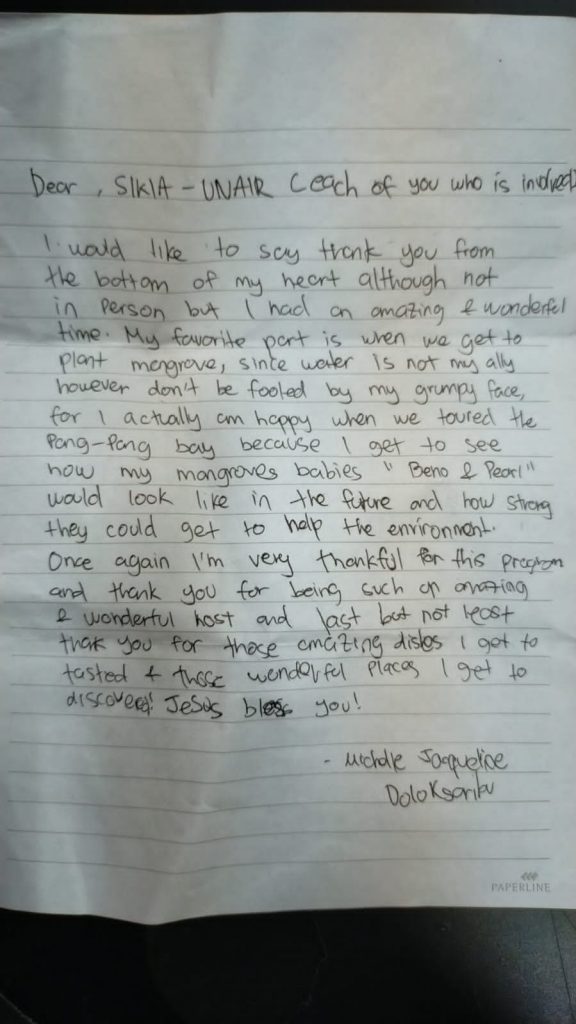 Dear , SIKIA - UNAIR ( each of you who is involved)
I would like to say thank you from
the bottom of my heart although not
in person but I had an amazing & wonderful
time. My favorite part is when we get to
plant mangrove, since water is not my ally
however don't be fooled by my grumpy face,
for I actually am happy when we toured the
Pang-Pang bay because I get to see
how my mangroves babies "Beno & Pearl"
would look like in the future and how strong
they could get to help the environment.
Once again I'm very thankful for this program
and thank you for being such an amazing
& wonderful host and last but not least
thak you for those amazing dishes I get to
tasted & those wonderful places I get to
discovered! Jesus bless you!
- Michelle Jacqueline
Doloksaribu
PAPERLINE